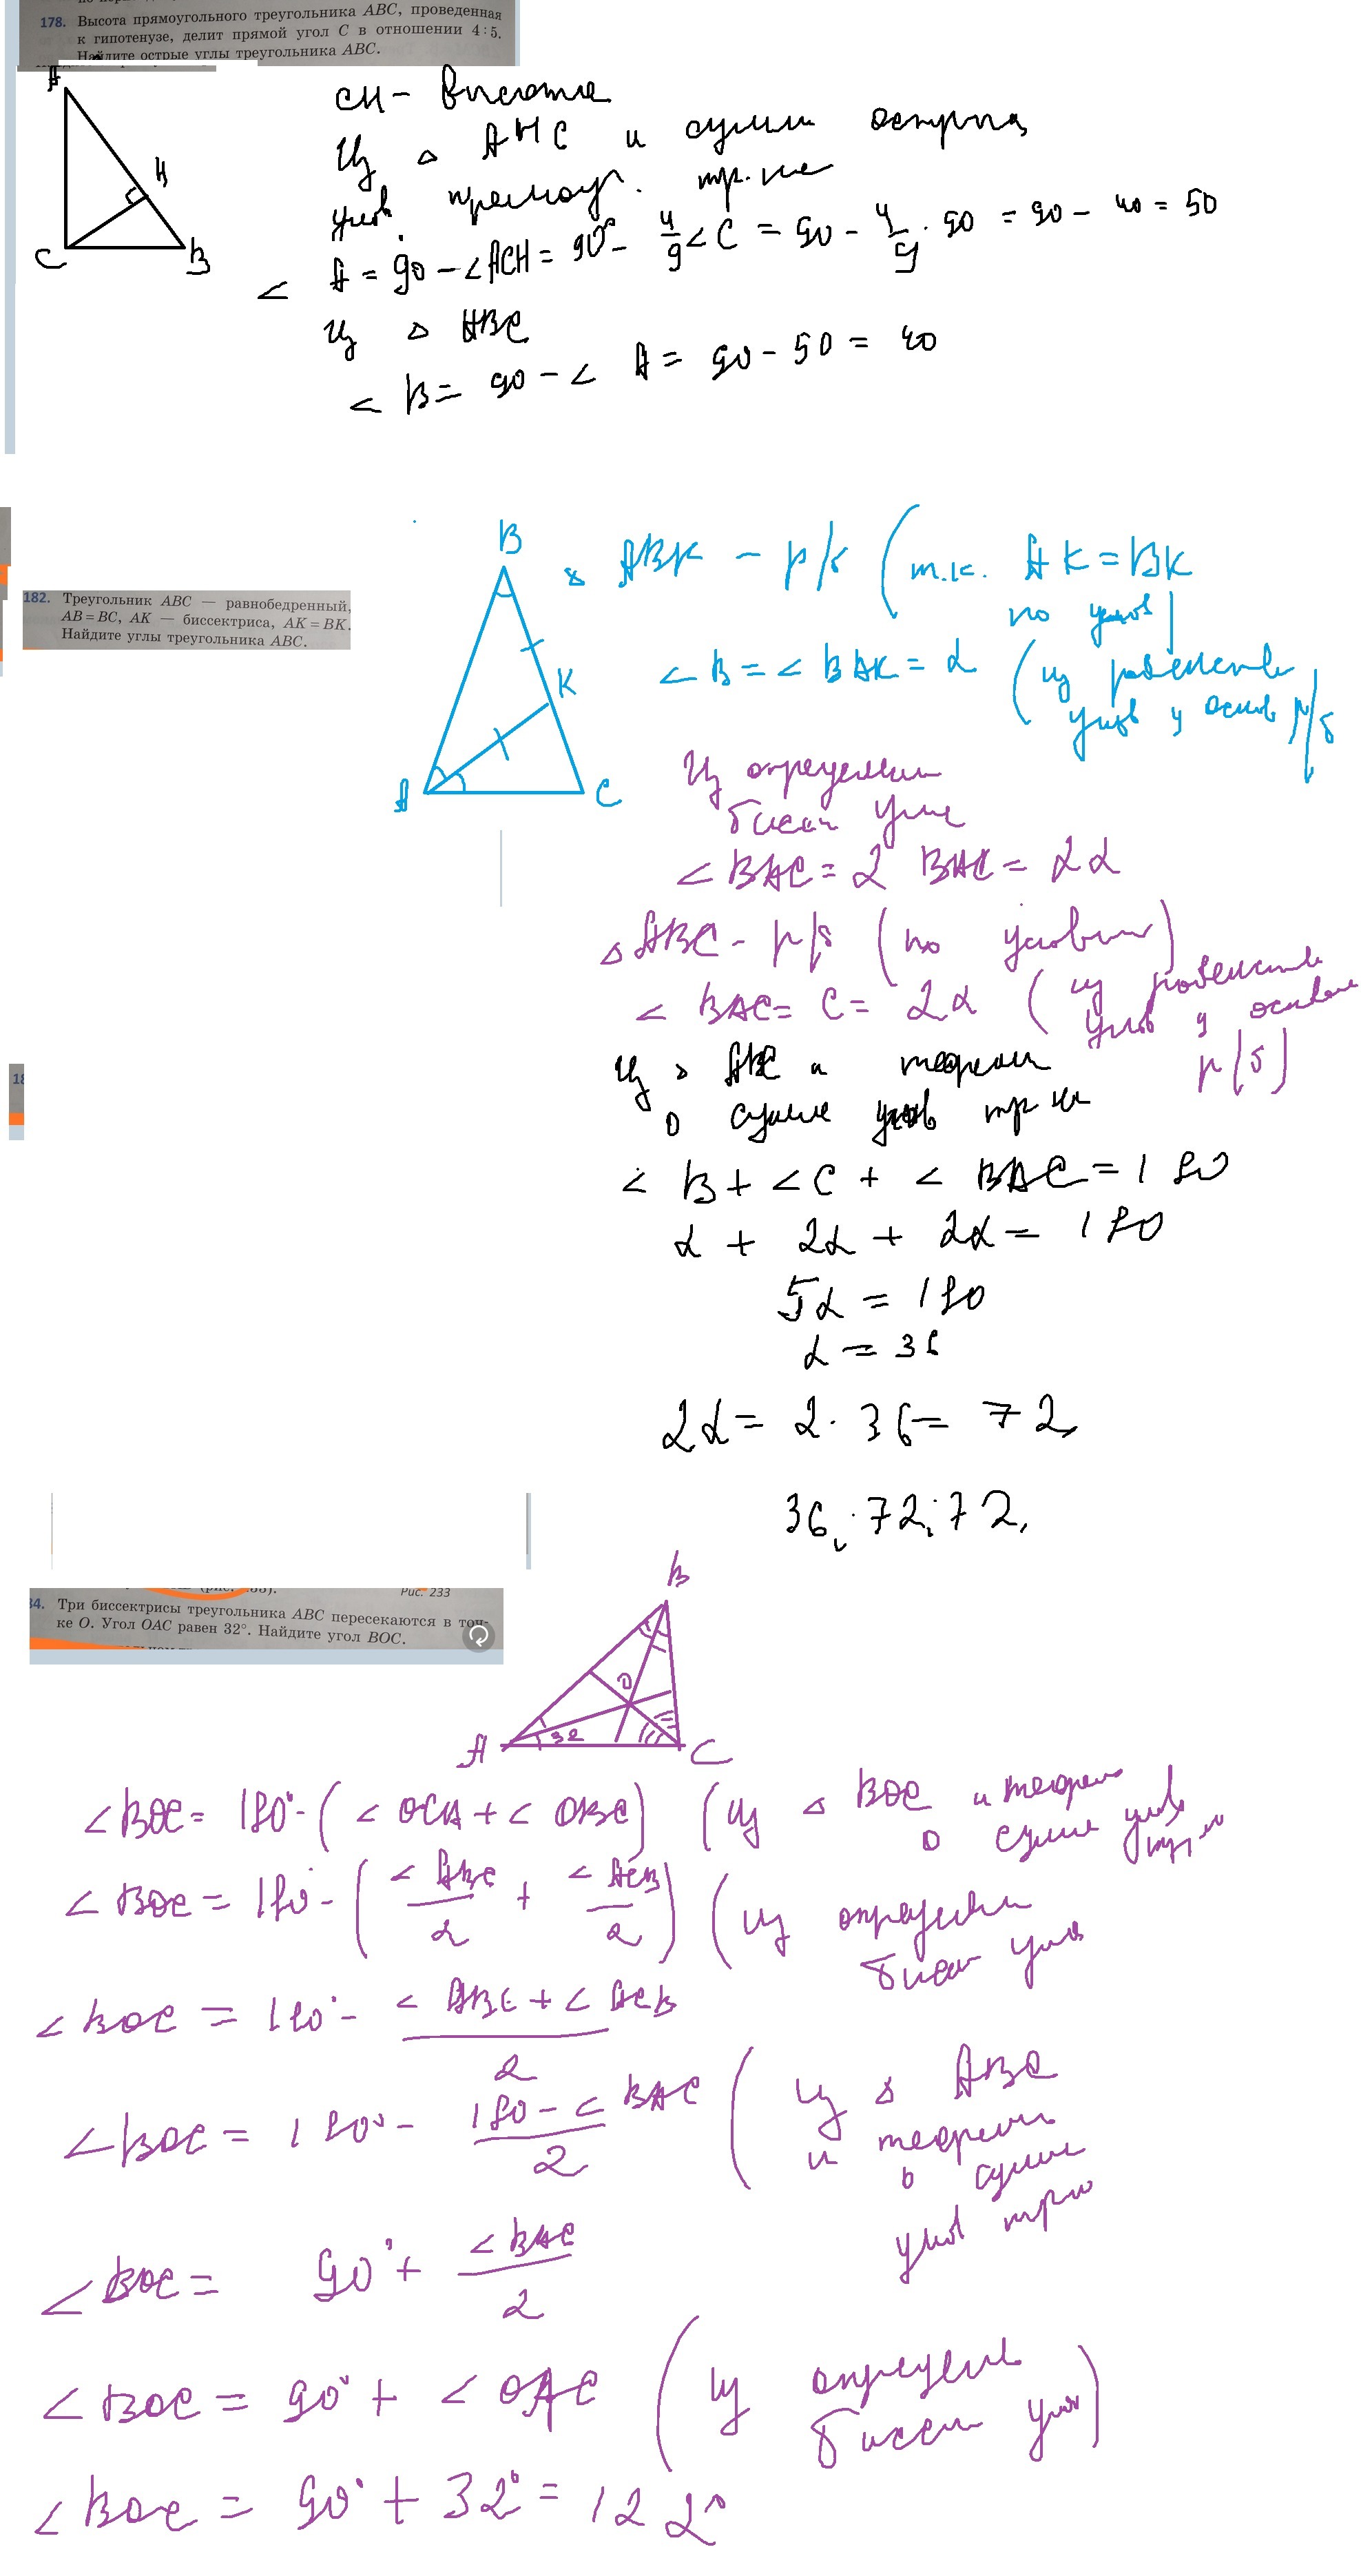 178. Высота прямоугольного треугольника ABC, проведенная
к гипотенузе, делит прямой угол C в отношении 4:5.
Найдите острые углы треугольника ABC.
A
H
C
B
CH - высота
Из △ AHC и сумма острых
углов прямоуг. тр-ка
∠ A = 90 - ∠ACH = 90° - 4/9 ∠C = 90 - 4/9 · 90 = 90 - 40 = 50
Из △ ABC
∠ B = 90 - ∠ A = 90 - 50 = 40
182. Треугольник ABC — равнобедренный,
AB=BC, AK — биссектриса, AK=BK.
Найдите углы треугольника ABC.
B
K
A
C
△ ABK - р/б (т.к. AK = BK
по услов)
∠ B = ∠ BAK = α (из равенства
углов у основ р/б
Из определения
биссек угла
∠ BAC = 2 BAC = 2α
△ ABC - р/б (по условию)
∠ BAC = C = 2α (из равенства
углов у основан
р/б)
18
Из △ ABC и теоремы
о сумме углов тр-ка
∠ B + ∠C + ∠ BAC = 180
α + 2α + 2α = 180
5α = 180
α = 36
2α = 2 · 36 = 72
36; 72; 72.
Рис. 233
34. Три биссектрисы треугольника ABC пересекаются в точ-
ке O. Угол OAC равен 32°. Найдите угол BOC.
B
O
32
A
C
∠BOC = 180° - (∠ OCA + ∠ OBC) (из △ BOC и теорема
о сумме углов
∠ BOC = 180° - (∠ ABC/2 + ∠ ACB/2) (из определения
биссек угла
∠ BOC = 180° - (∠ ABC + ∠ ACB)/2
∠BOC = 180° - (180 - ∠ BAC)/2 (из △ ABC
и теоремы
о сумме
углов тр-ка
∠BOC = 90° + ∠ BAC/2
∠BOC = 90° + ∠ OAC (из определен
биссек угла)
∠ BOC = 90° + 32° = 122°